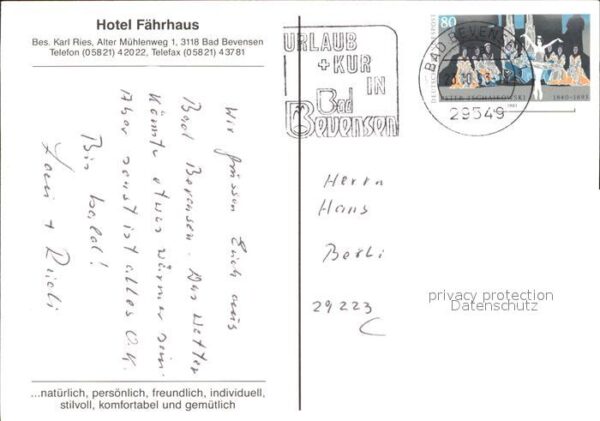 Hotel Fährhaus
Bes. Karl Ries, Alter Mühlenweg 1, 3118 Bad Bevensen
Telefon (05821) 42022, Telefax (05821) 43781
Wir grüssen Euch aus
Bad Bevensen. Das Wetter
könnte etwas wärmer sein.
Aber sonst ist alles O.K.
Bis bald!
...natürlich, persönlich, freundlich, individuell,
stilvoll, komfortabel und gemütlich
URLAUB
+ KUR
IN
Bad
Bevensen
BAD BEVENSEN
29549
80
DEUTSCHE BUNDESPOST
PETER TSCHAIKOWSKY 1840-1893
Herrn
Hans
29223
privacy protection
Datenschutz